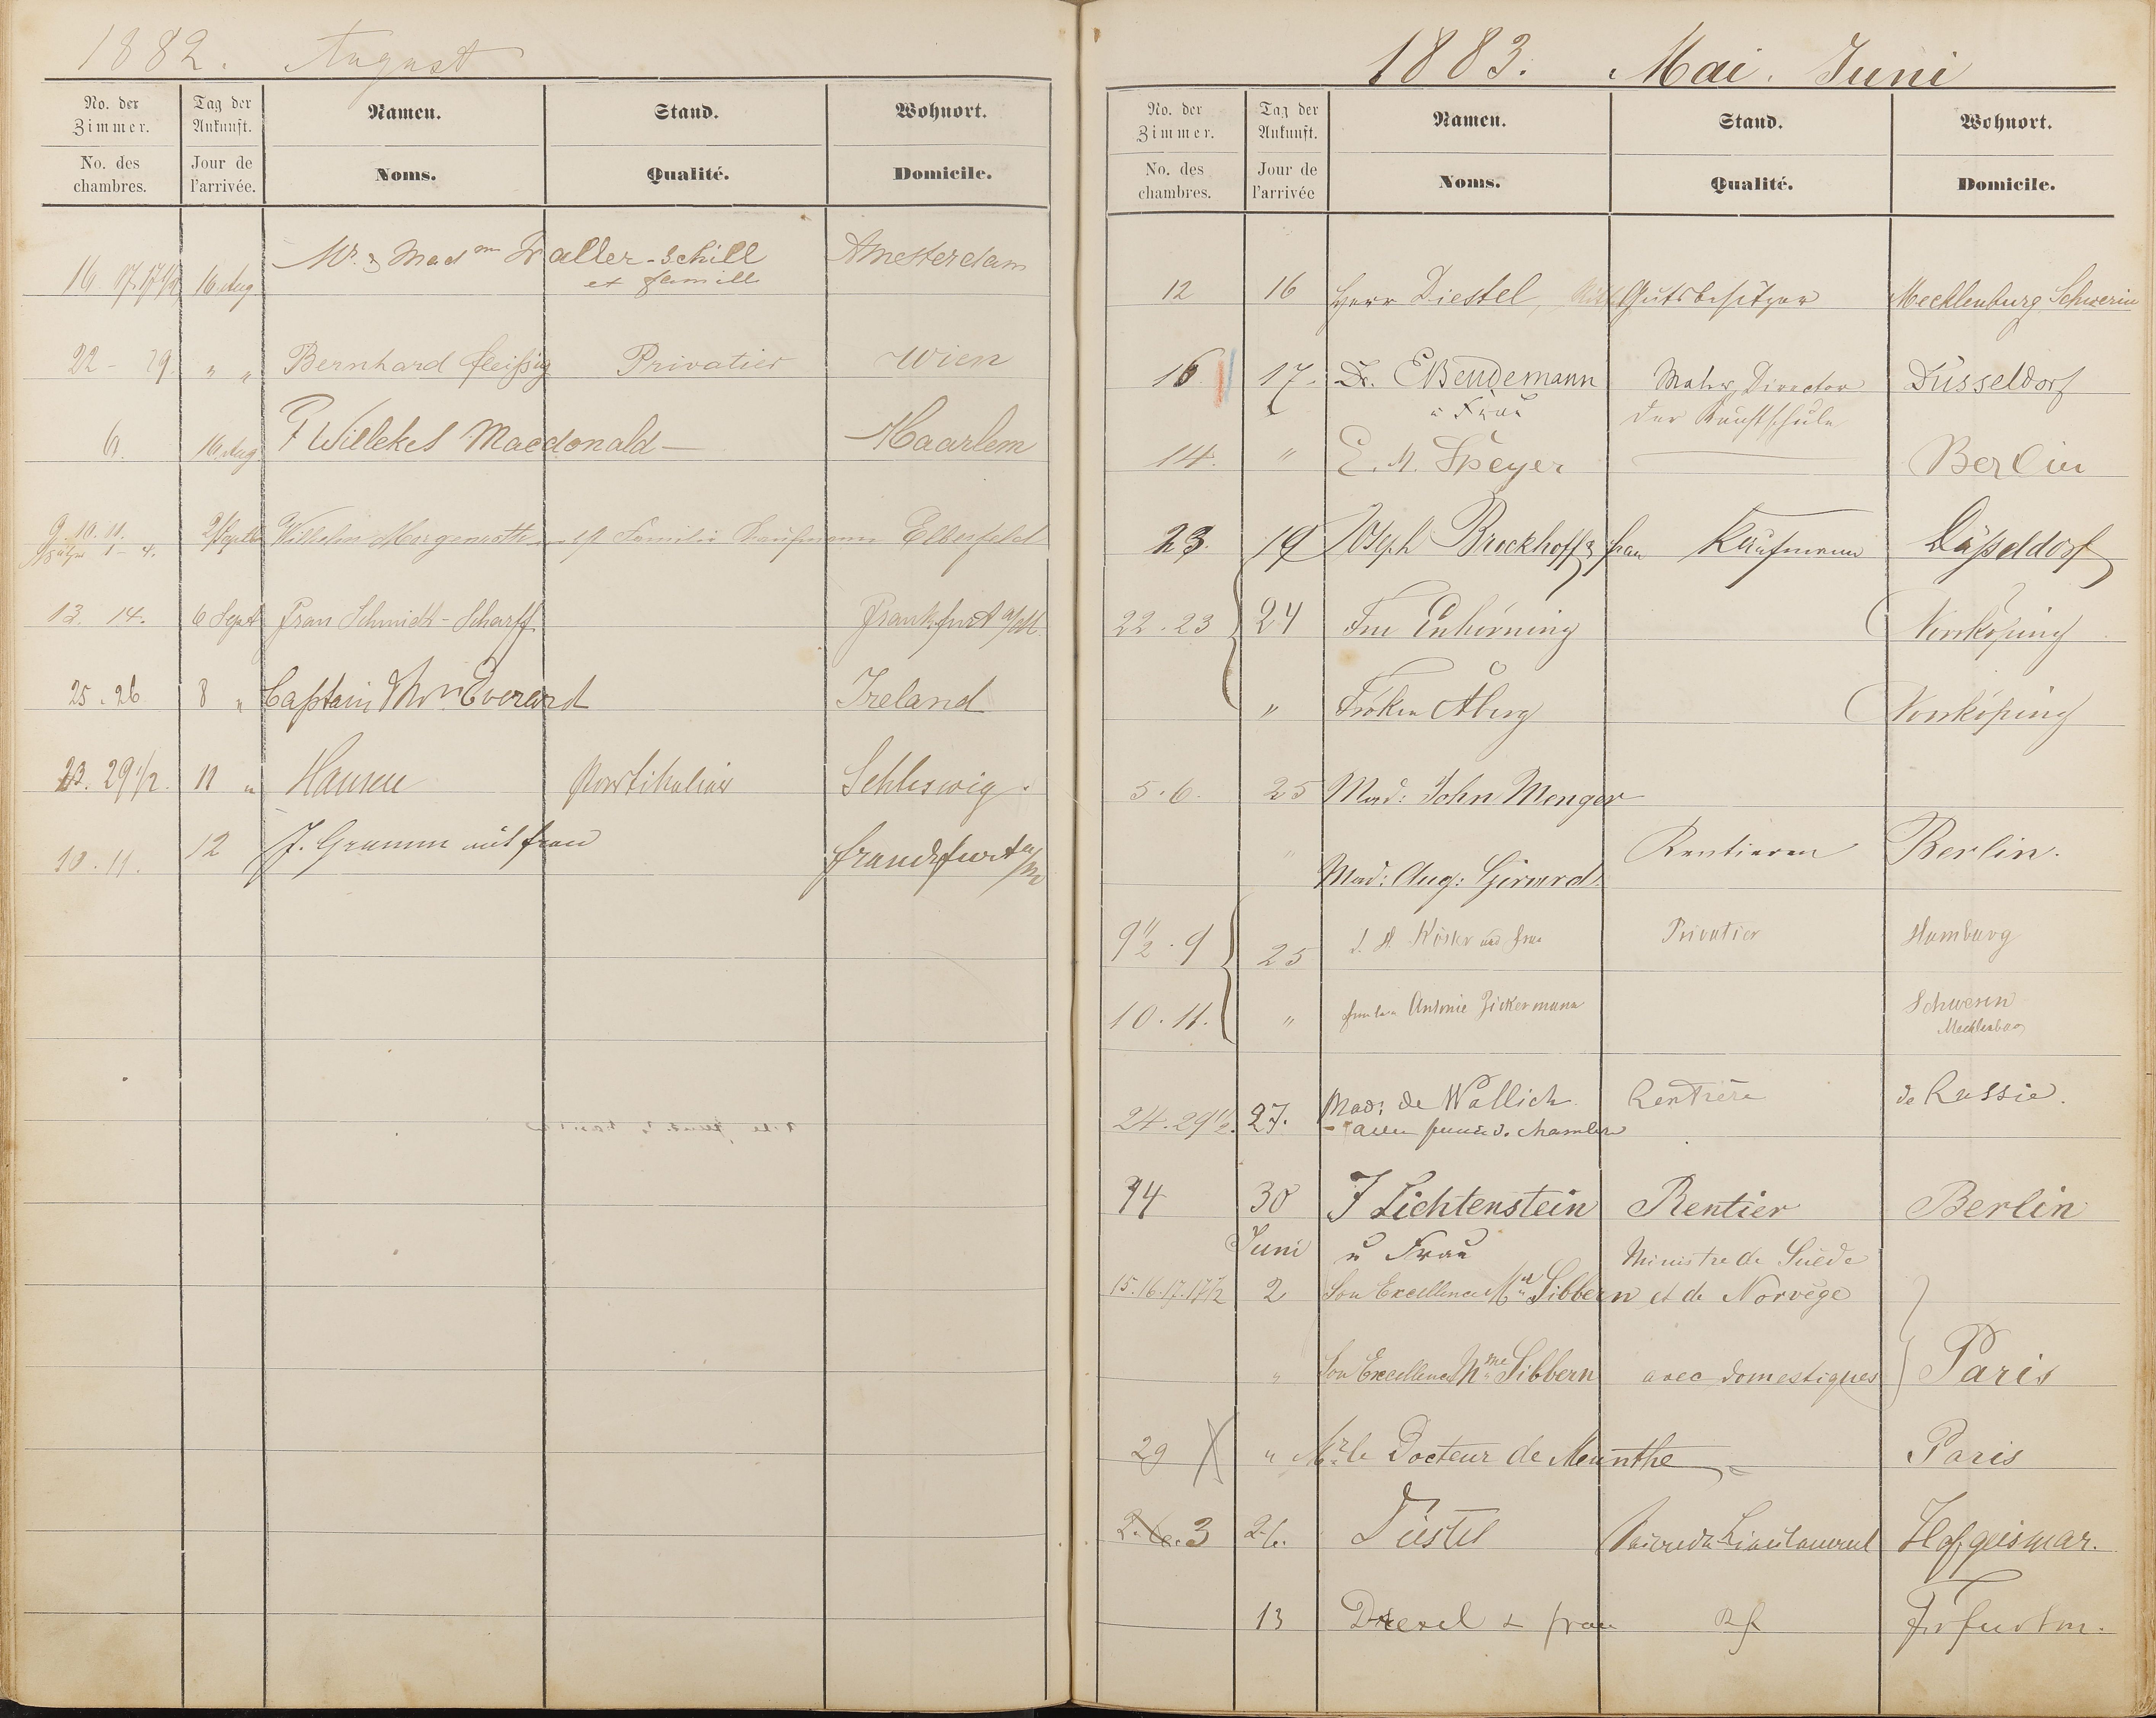 1882. August
No. der Zimmer. Tag der Ankunft. Namen. Stand. Wohnort.
No. des chambres. Jour de l'arrivée. Noms. Qualité. Domicile.
16 17.17½ 16 Aug Mr. & Madm Waller-Schill Amsterdam
et famille
22 - 29. " " Bernhard fleißig Privatier Wien
6. 16. Aug F Willekes Macdonald — Haarlem
9. 10. 11. 2 Septbr Wilhelm Morgenroth Familie Kaufmann Elberfeld
später 1 - 4.
13. 14. 6 Sept Frau Schmidt-Scharff Frankfurt a/M.
25. 26 8 " Captain & Mrs Everard Ireland
23. 29½. 11 " Hansen Partikulier Schleswig.
10. 11. 12 J. Gramm mit frau Frankfurt a/M
1883. Mai. Juni
No. der Zimmer. Tag der Ankunft. Namen. Stand. Wohnort.
No. des chambres. Jour de l'arrivée Noms. Qualité. Domicile.
12 16 Herr Diestel, Gutsbesitzer Mecklenburg Schwerin
16 17. Dr. E Bendemann Maler, Director Düsseldorf
u Frau der Kunstschule
14. " E. M. Speyer Berlin
23. 19 Joseph Brockhoff & frau Kaufmann Düsseldorf
22. 23 24 Fru Enhörning Norrköping
" Fröken Åberg Norrköping
5. 6. 25 Mad: John Menger
" Rentieren Berlin.
Mad: Aug: Gerard.
9½. 9 25 Köster und frau Privatier Hamburg
10. 11. " Antonie Zickermann Schwerin
Mecklenburg
24. 29½. 27. Mad: de Wallich Rentière de Russie.
avec femme d. chambre
14 30 J Lichtenstein Rentier Berlin
Juni u Frau Ministre de Suède
15. 16. 17. 17½ 2 Son Excellence Mr. Sibbern et de Norvège
" Son Excellence Mme Sibbern avec domestiques Paris
29 " Mr. le Docteur de Meunthe Paris
3 26. Diestel Seconde Lieutenant Hofgeismar.
13 Drexel & frau Frkfurt m.